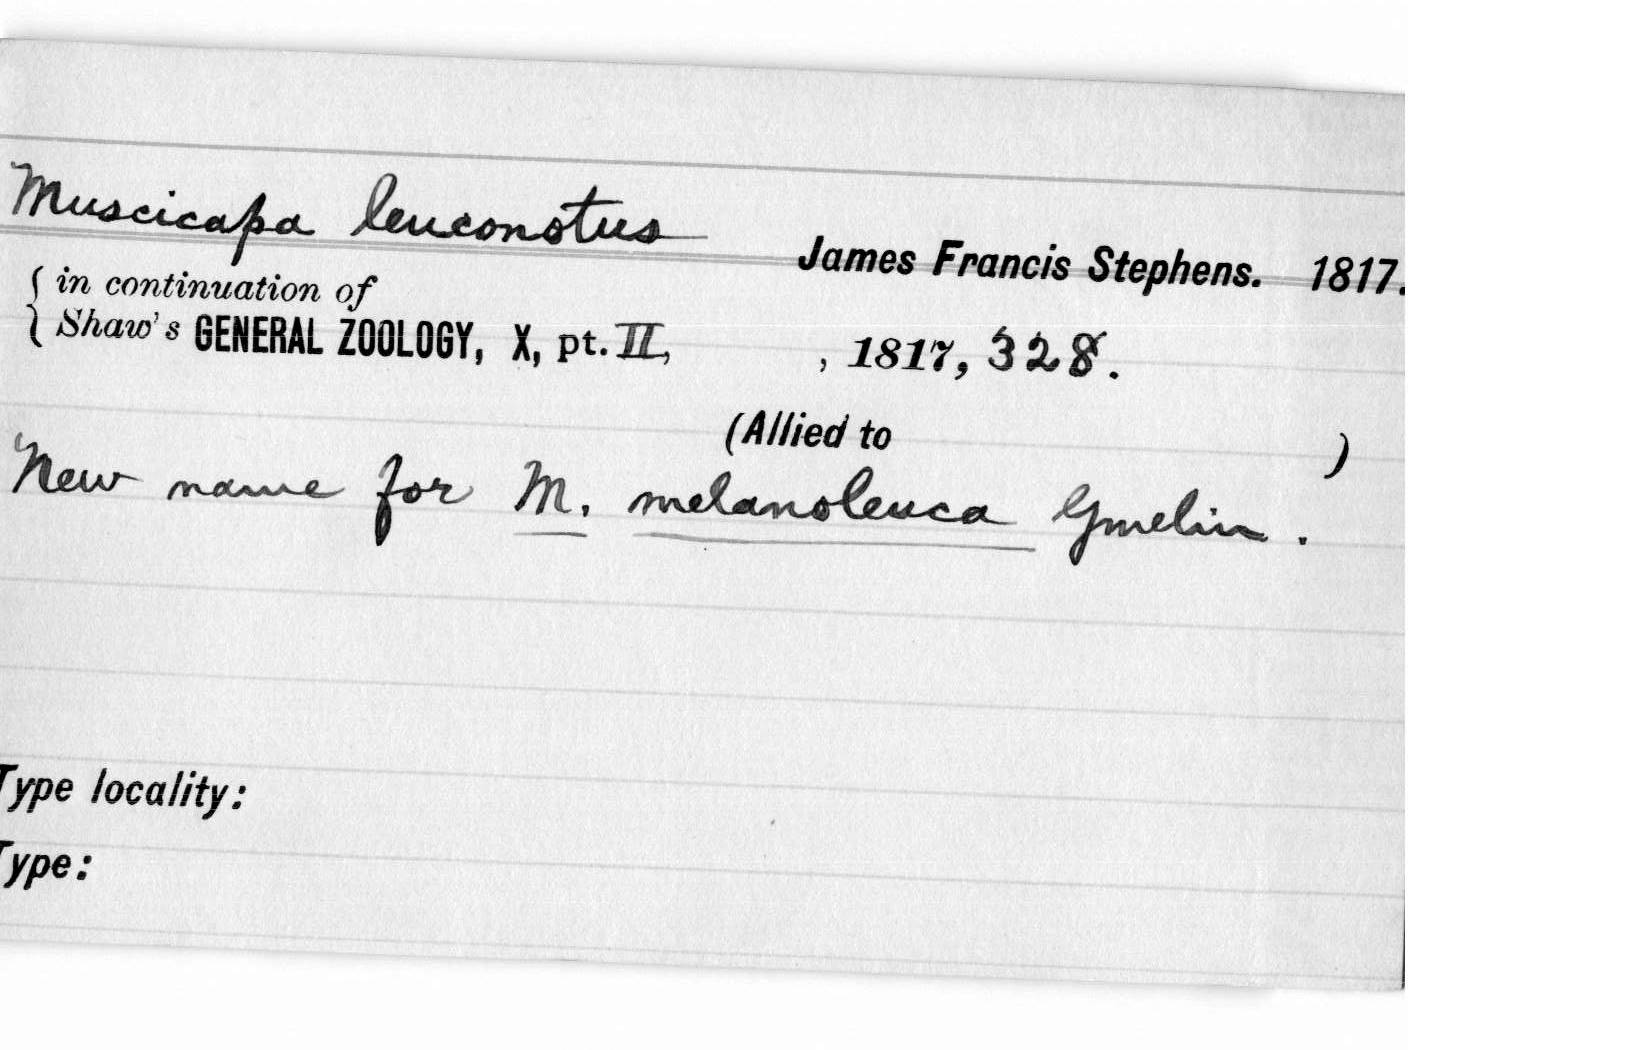 Muscicapa leuconotus
James Francis Stephens. 1817.
{ in continuation of
Shaw's GENERAL ZOOLOGY, X, pt. II, , 1817, 328.
(Allied to )
New name for M. melanoleuca Gmelin.
Type locality:
Type: